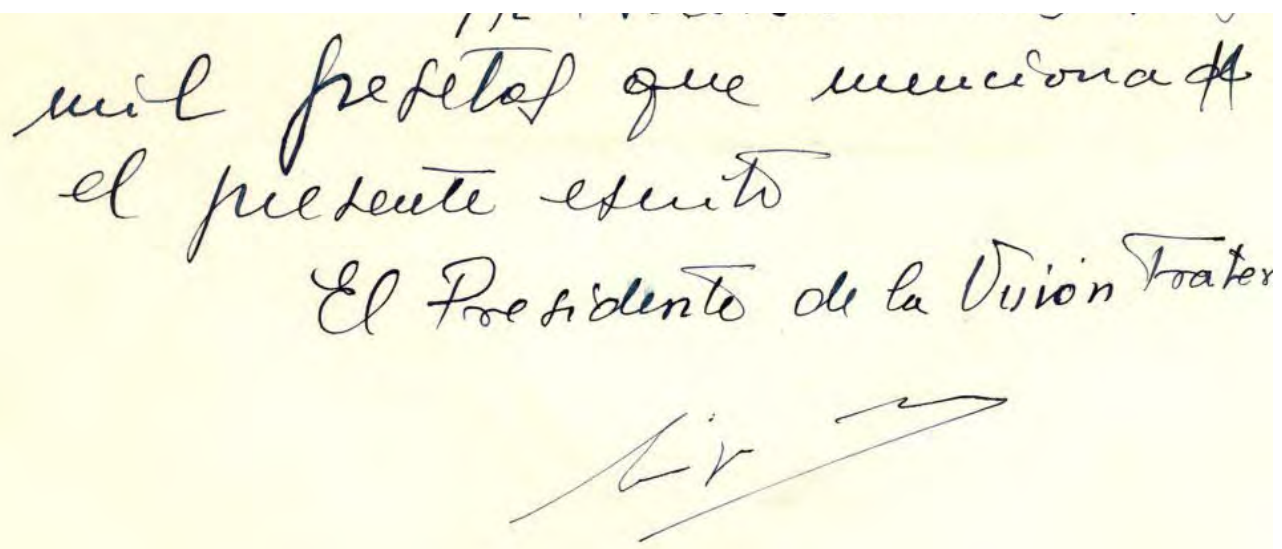 mil pesetas que menciona
el presente escrito
El Presidente de la Unión Frater